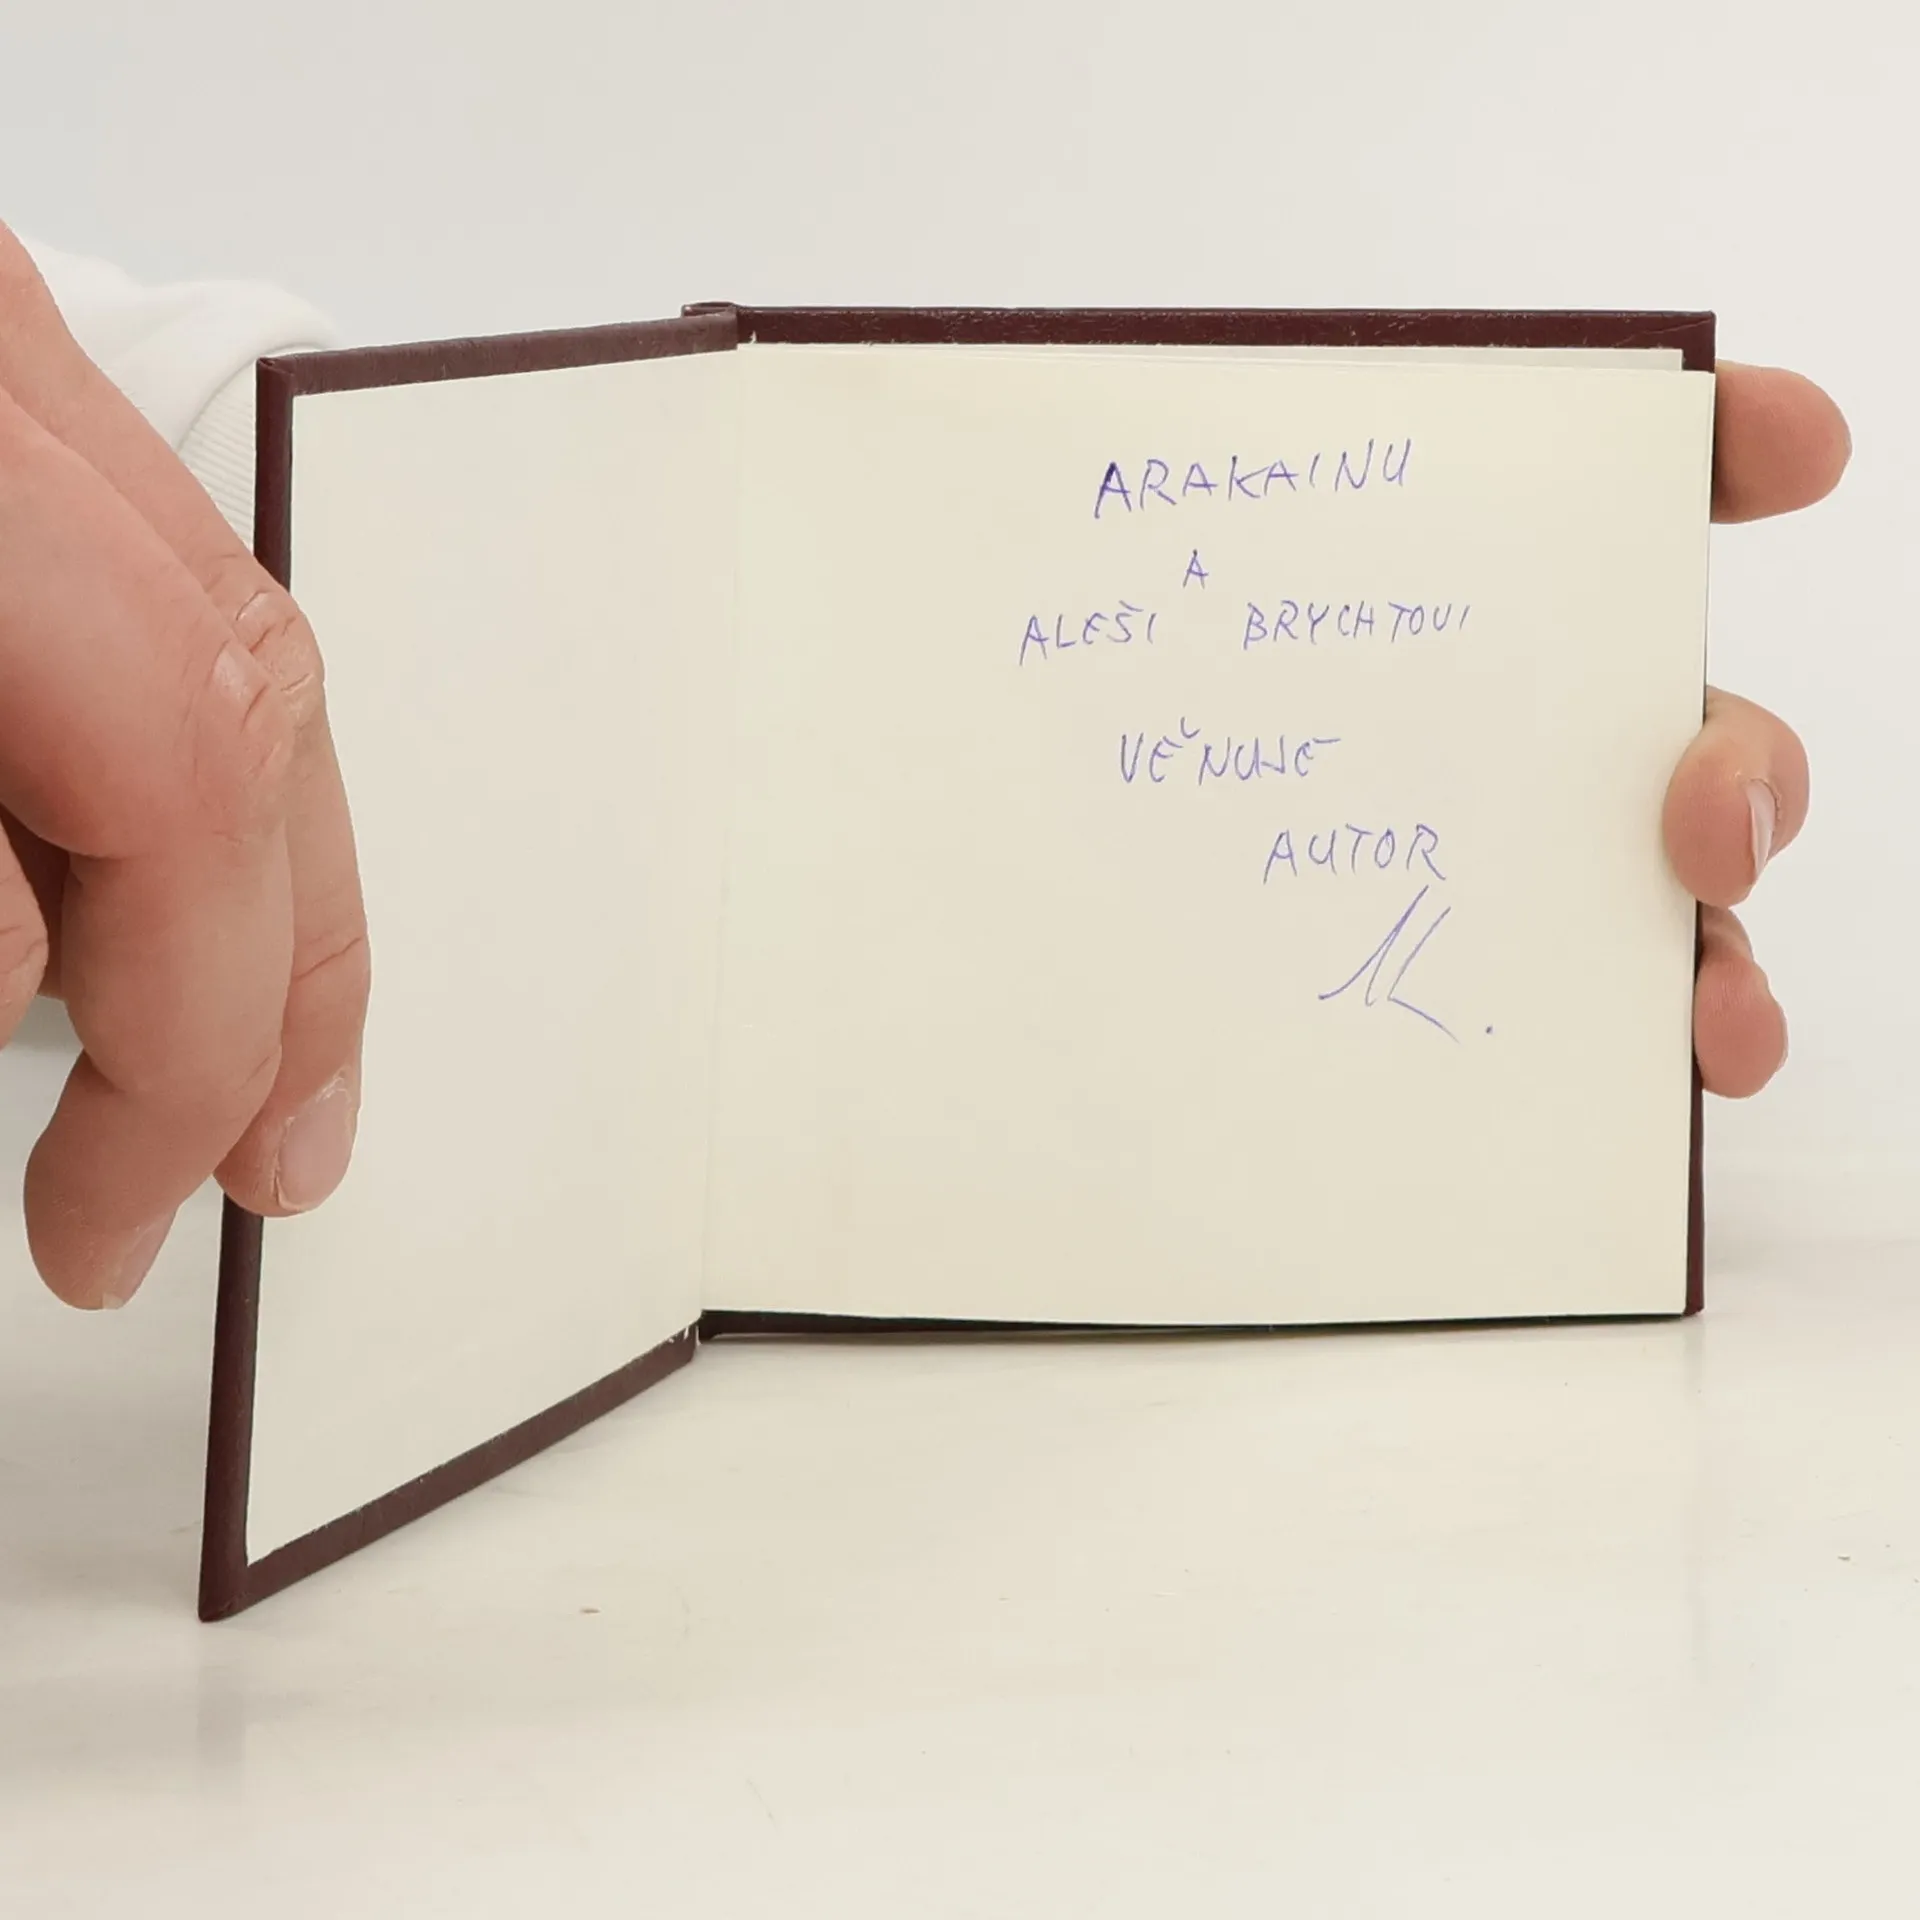 ARAKAINU
A
ALEŠI BRYCHTOVI
VĚNUJE
AUTOR